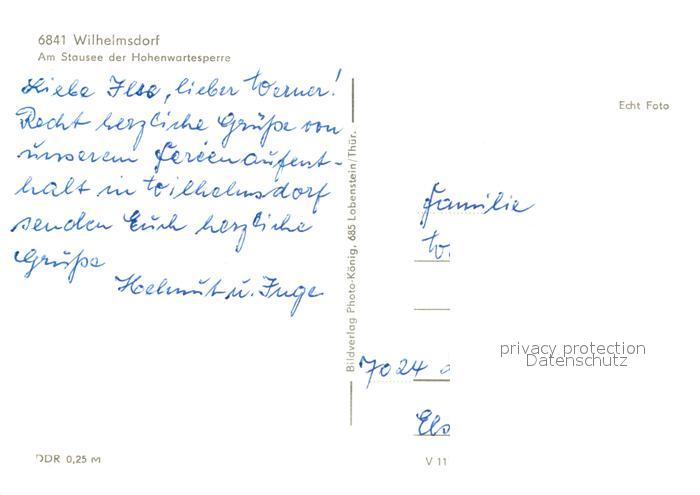 6841 Wilhelmsdorf
Am Stausee der Hohenwartesperre
Liebe Ilse, lieber Werner!
Recht herzliche Grüße von
unserem Ferienaufent-
halt in Wilhelmsdorf
senden Euch herzliche
Grüße
Helmut u. Inge
Bildverlag Photo-König, 685 Lobenstein/Thür.
Echt Foto
Familie
7024
privacy protection
Datenschutz
DDR 0,25 M
V 11